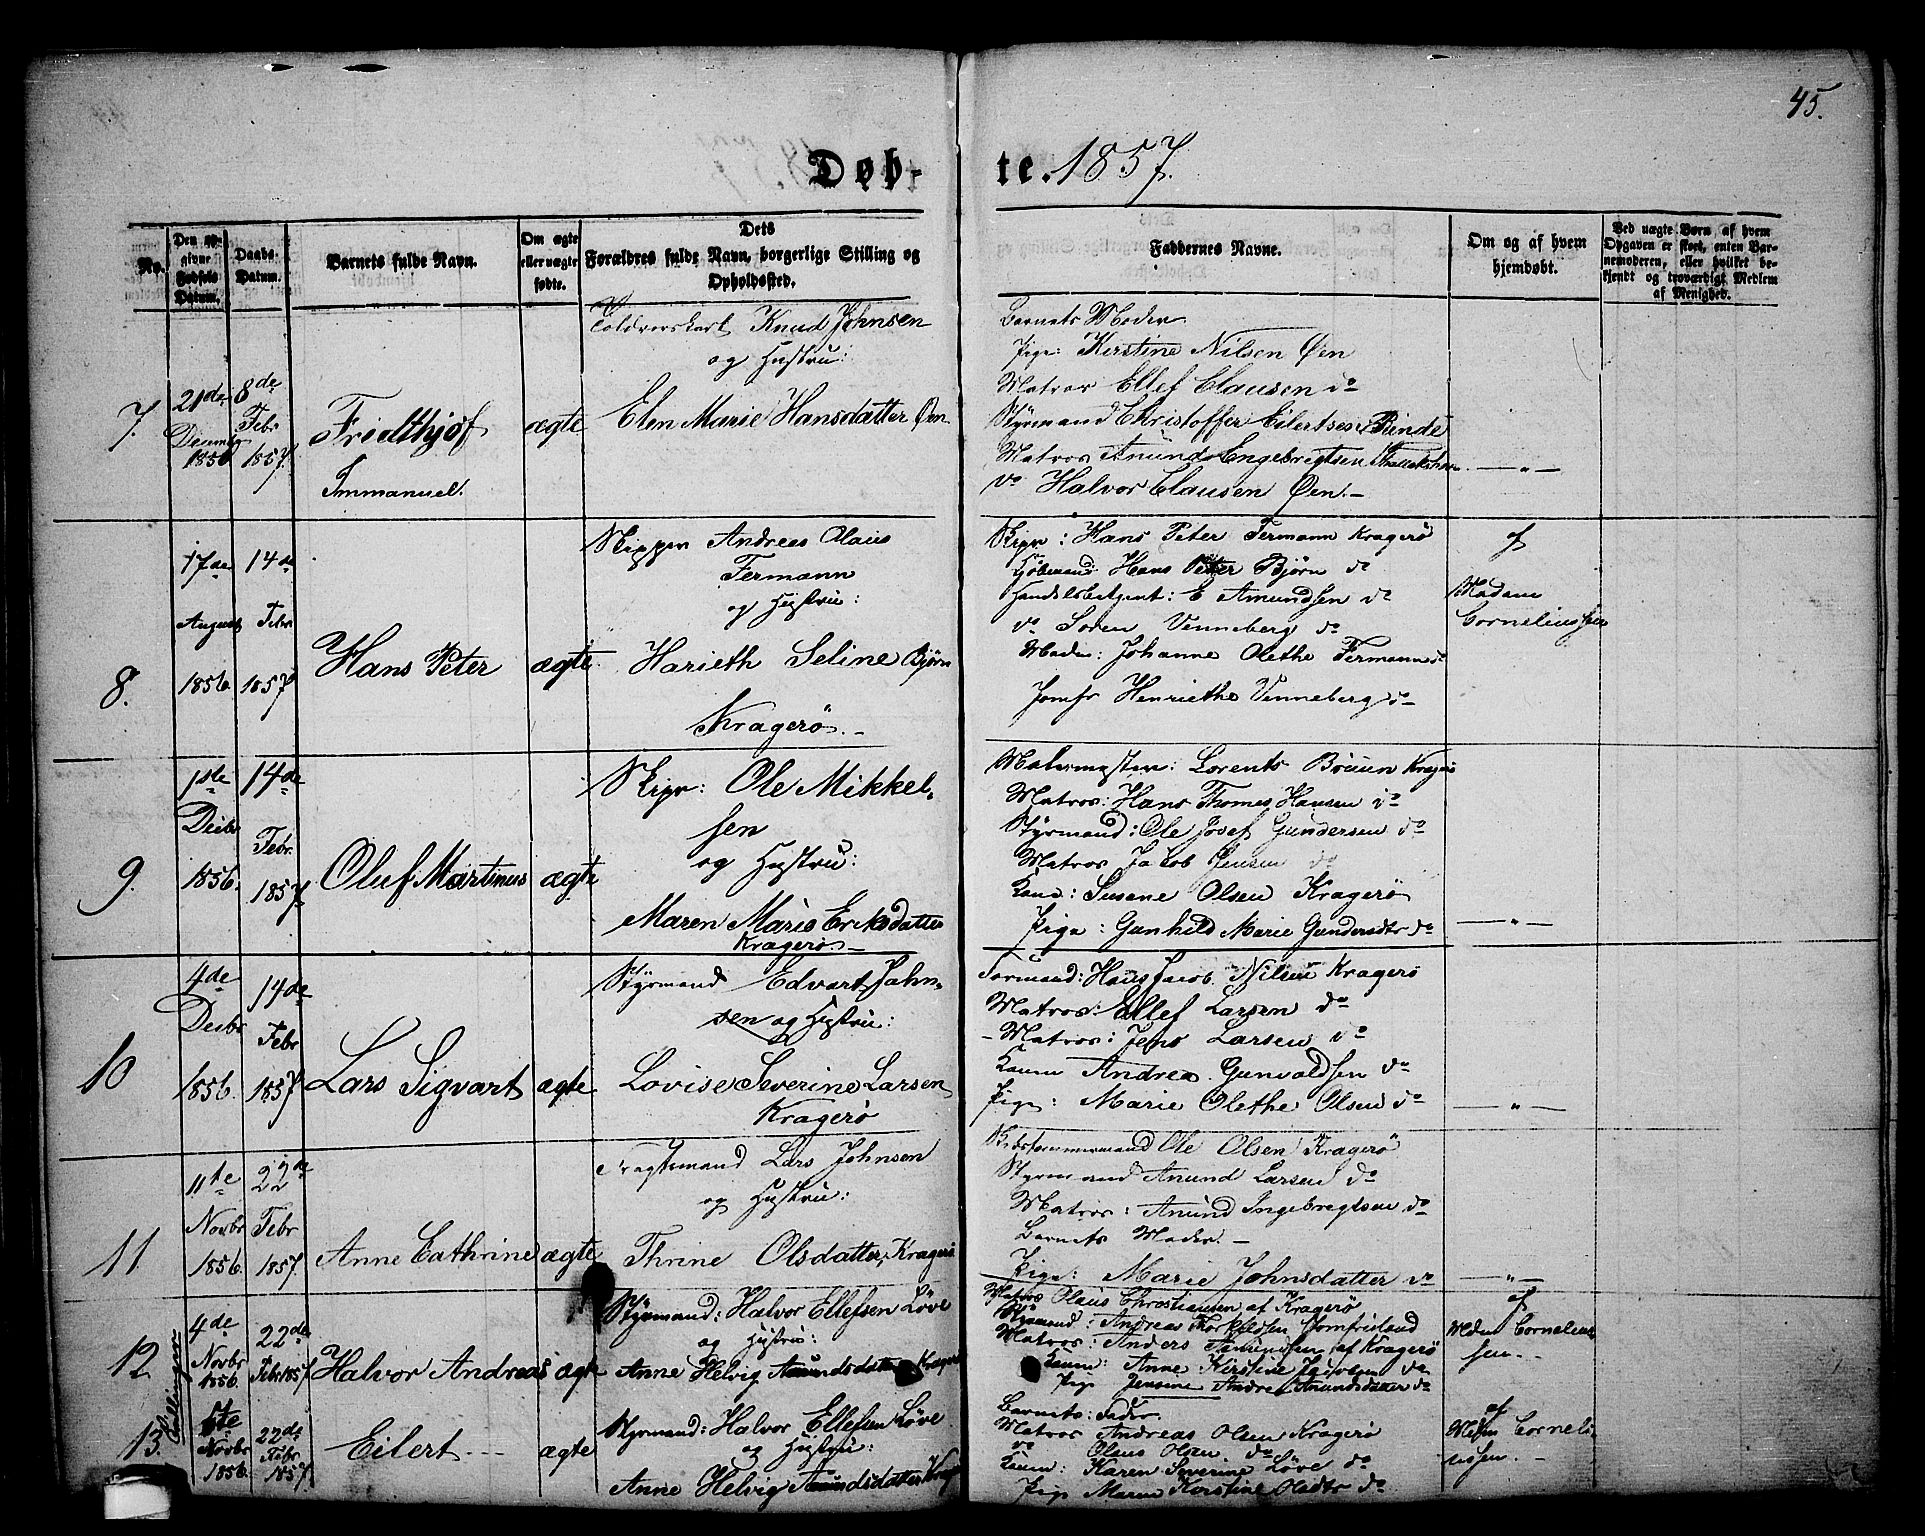 45.
Døb-
te. 1857.
No.
Den op-
givne
Fødsels
Datum.
Daabs-
Datum.
Barnets fulde Navn.
Om ægte
eller uægte
fødte.
Dets
Forældres fulde Navn, borgerlige Stilling og
Opholdssted.
Faddernes Navne.
Om og af hvem
hjemdøbt.
Ved uægte Børn af hvem
Opgaven er skeet, enten Bar-
nemoderen, eller hvilket be-
kjendt og troværdigt Medlem
af Menighed.
7.
21de
1856
8de
Febr
1857.
Fridthjof
Immanuel.
ægte
Knud Johnsen
og Hustru:
Elen Marie Hansdatter Øen
Barnets Moder.
Pige: Kirstine Nilsen Øen
Matros Ellef Clausen do
Styrmand Christoffer Eilertsen Rinde
Matros Anund Engebregtsen
do Halvor Clausen Øen.-
— „ —
8.
17de
August
1856.
14de
Febr
1857
Hans Peter
ægte
Skipper Andreas Olaus
Fermann
og Hustru:
Harieth Seline Bjørn
Kragerø.-
Skipr: Hans Peter Fermann Kragerø
Kjøbmand: Hans Peter Bjørn do
E Amundsen do
do Soren Venneberg do
Johanne Olethe Fermann do
Jomfr Henriethe Venneberg do
af
Madam
Corneliussen
9.
1ste
Decbr
1856.
14de
Febr.
1857
Oluf Martinus
ægte
Skipr: Ole Mikkel-
sen
og Hustru:
Maren Marie Eriksdatter
Kragerø-
Lorents Kragerø
Matros: Hans Thomes Hansen do
Styrmand: Ole Josef Gundersen do
Matros Jakob Jensen do
Kone: Susane Olsen Kragerø
Pige: Gunhild Marie Gundersdtr do
— „ —
10
4de
Decbr
1856.
14de
Febr
1857
Lars Sigvart
ægte
Styrmand Edvart John-
sen og Hustru:
Lovise Severine Larsen
Kragerø
Hans Jacob Nilsen Kragerø
Matros: Ellef Larsen do
- Matros: Jens Larsen do
Andrea Gunvaldsen do
Pige: Marie Olethe Olsen do
— „ —
11
11te
Novbr
1856.
22de
Febr
1857.
Anne Cathrine
ægte
Lars Johnsen
og Hustru:
Thrine Olsdatter, Kragerø
Ole Olsen Kragerø
Styrmand Anund Larsen do
Matros: Anund Ingebregtsen do
Barnets Moder.-
Pige: Marie Johnsdatter do
— „ —
Tvillinger
12
4de
Novbr
1856.
22de
Febr 1857
Halvor Andreas
ægte
Styrmand: Halvor Ellefsen Løve
og Hustru:
Anne Helvig Anundsdatter Kragerø
Matros Olaus Christiansen af Kragerø
Styrmand: Andreas
Matros: Anders af Kragerø
Anne Kirstine do
Pige Jensine Andrea Anundsdatter do
af
Mdm Cornelius-
sen.-
13.
Novbr
1856.
22de
Febr
1857.
Eilert.
ægte
Styrmand: Halvor Ellefsen Løve
og Hustru:
Anne Helvig Anundsdatter
Barnets: Fader.
Matros Andreas Olsen Kragerø
do Olaus Olsen do
Karen Severine Løve do
Pige Maren Kirstine Olsdtr do
af
Corneli-
ussen. -